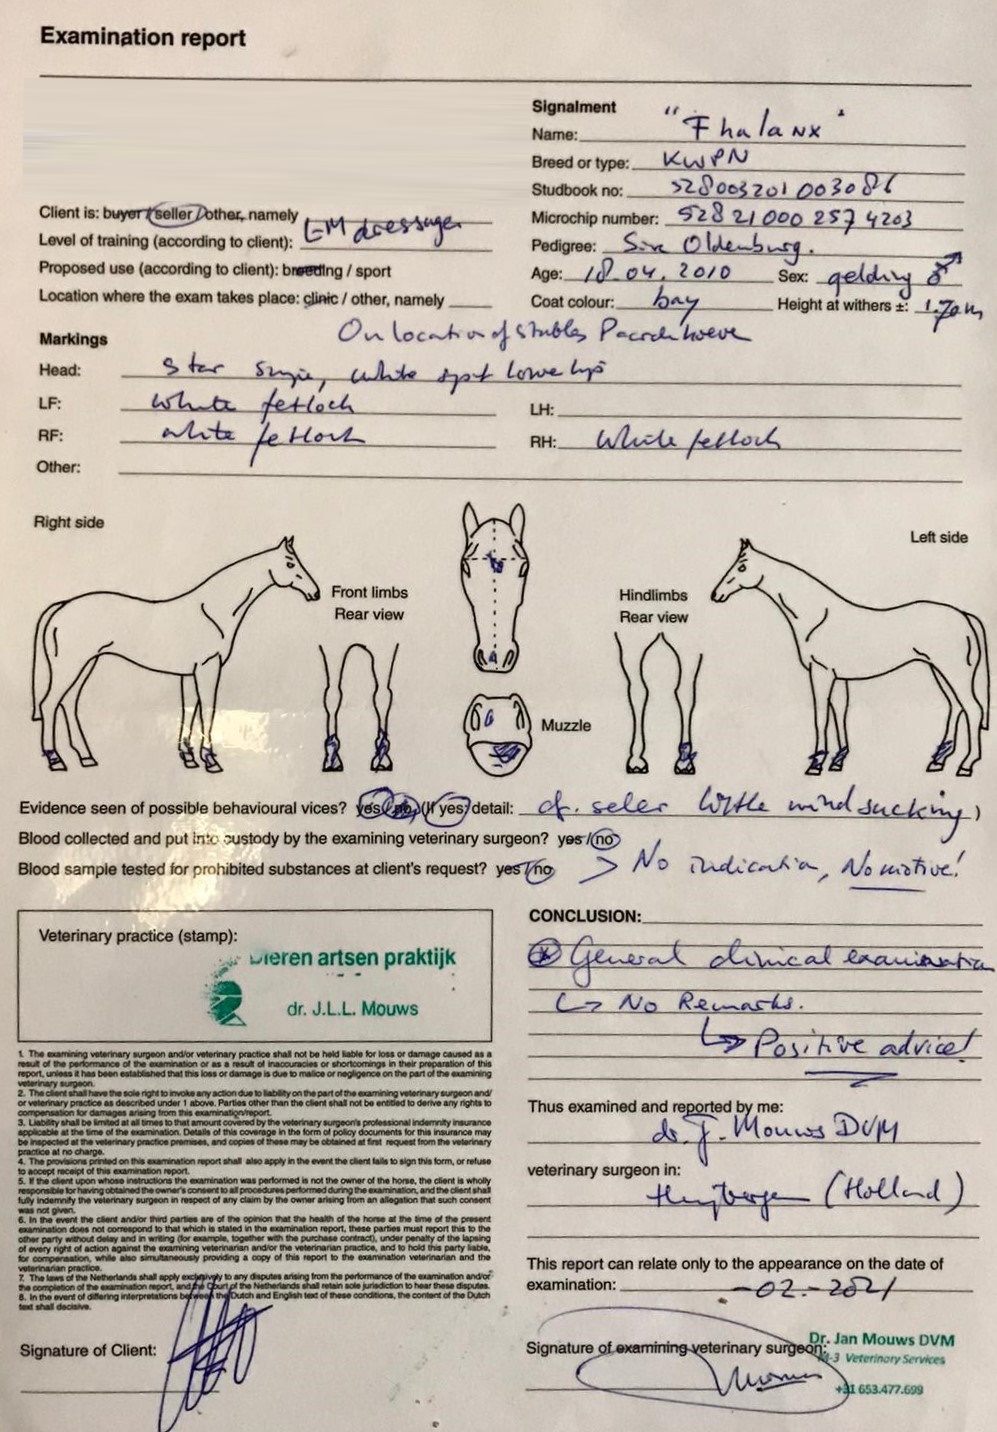 Examination report
Signalment
Name: "Fhalanx"
Breed or type: KWPN
Studbook no: 528003201003086
Client is: buyer / seller / other, namely
Microchip number: 528 21000 257 4203
Level of training (according to client): LM dressage
Pedigree: Sire Oldenburg.
Proposed use (according to client): breeding / sport
Age: 18.04.2010 Sex: gelding ♂
Location where the exam takes place: clinic / other, namely
Coat colour: bay Height at withers ±: 1.70 m
On location of stables
Markings
Head: Star snipe, white spot lower lip
LF: white fetlock LH:
RF: white fetlock RH: White fetlock
Other:
Right side
Left side
Front limbs
Rear view
Hindlimbs
Rear view
Muzzle
Evidence seen of possible behavioural vices? yes / no, (If yes, detail: cf. seler little windsucking)
Blood collected and put into custody by the examining veterinary surgeon? yes / no
Blood sample tested for prohibited substances at client's request? yes / no > No indication, No motive!
Veterinary practice (stamp):
Dieren artsen praktijk
dr. J.L.L. Mouws
CONCLUSION:
General clinical examination
↳ No Remarks.
↳ Positive advice!
1. The examining veterinary surgeon and/or veterinary practice shall not be held liable for loss or damage caused as a
result of the performance of the examination or as a result of inaccuracies or shortcomings in their preparation of this
report, unless it has been established that this loss or damage is due to malice or negligence on the part of the examining
veterinary surgeon.
2. The client shall have the sole right to invoke any action due to liability on the part of the examining veterinary surgeon and/
or veterinary practice as described under 1 above. Parties other than the client shall not be entitled to derive any rights to
compensation for damages arising from this examination/report.
3. Liability shall be limited at all times to that amount covered by the veterinary surgeon's professional indemnity insurance
applicable at the time of the examination. Details of this coverage in the form of policy documents for this insurance may
be inspected at the veterinary practice premises, and copies of these may be obtained at first request from the veterinary
practice at no charge.
4. The provisions printed on this examination report shall also apply in the event the client fails to sign this form, or refuse
to accept receipt of this examination report.
5. If the client upon whose instructions the examination was performed is not the owner of the horse, the client is wholly
responsible for having obtained the owner's consent to all procedures performed during the examination, and the client shall
fully indemnify the veterinary surgeon in respect of any claim by the owner arising from an allegation that such consent
was not given.
6. In the event the client and/or third parties are of the opinion that the health of the horse at the time of the present
examination does not correspond to that which is stated in the examination report, these parties must report this to the
other party without delay and in writing (for example, together with the purchase contract), under penalty of the lapsing
of every right of action against the examining veterinarian and/or the veterinarian practice, and to hold this party liable,
for compensation, while also simultaneously providing a copy of this report to the examination veterinarian and the
veterinarian practice.
7. The laws of the Netherlands shall apply exclusively to any disputes arising from the performance of the examination and/or
the completion of the examination report, and the Court of the Netherlands shall retain sole jurisdiction to hear these disputes.
8. In the event of differing interpretations between the Dutch and English text of these conditions, the content of the Dutch
text shall decisive.
Thus examined and reported by me:
dr. J. Mouws DVM
veterinary surgeon in:
(Holland)
This report can relate only to the appearance on the date of
examination: -02.-2021
Signature of Client:
Signature of examining veterinary surgeon:
Dr. Jan Mouws DVM
-3 Veterinary Services
+31 653.477.699